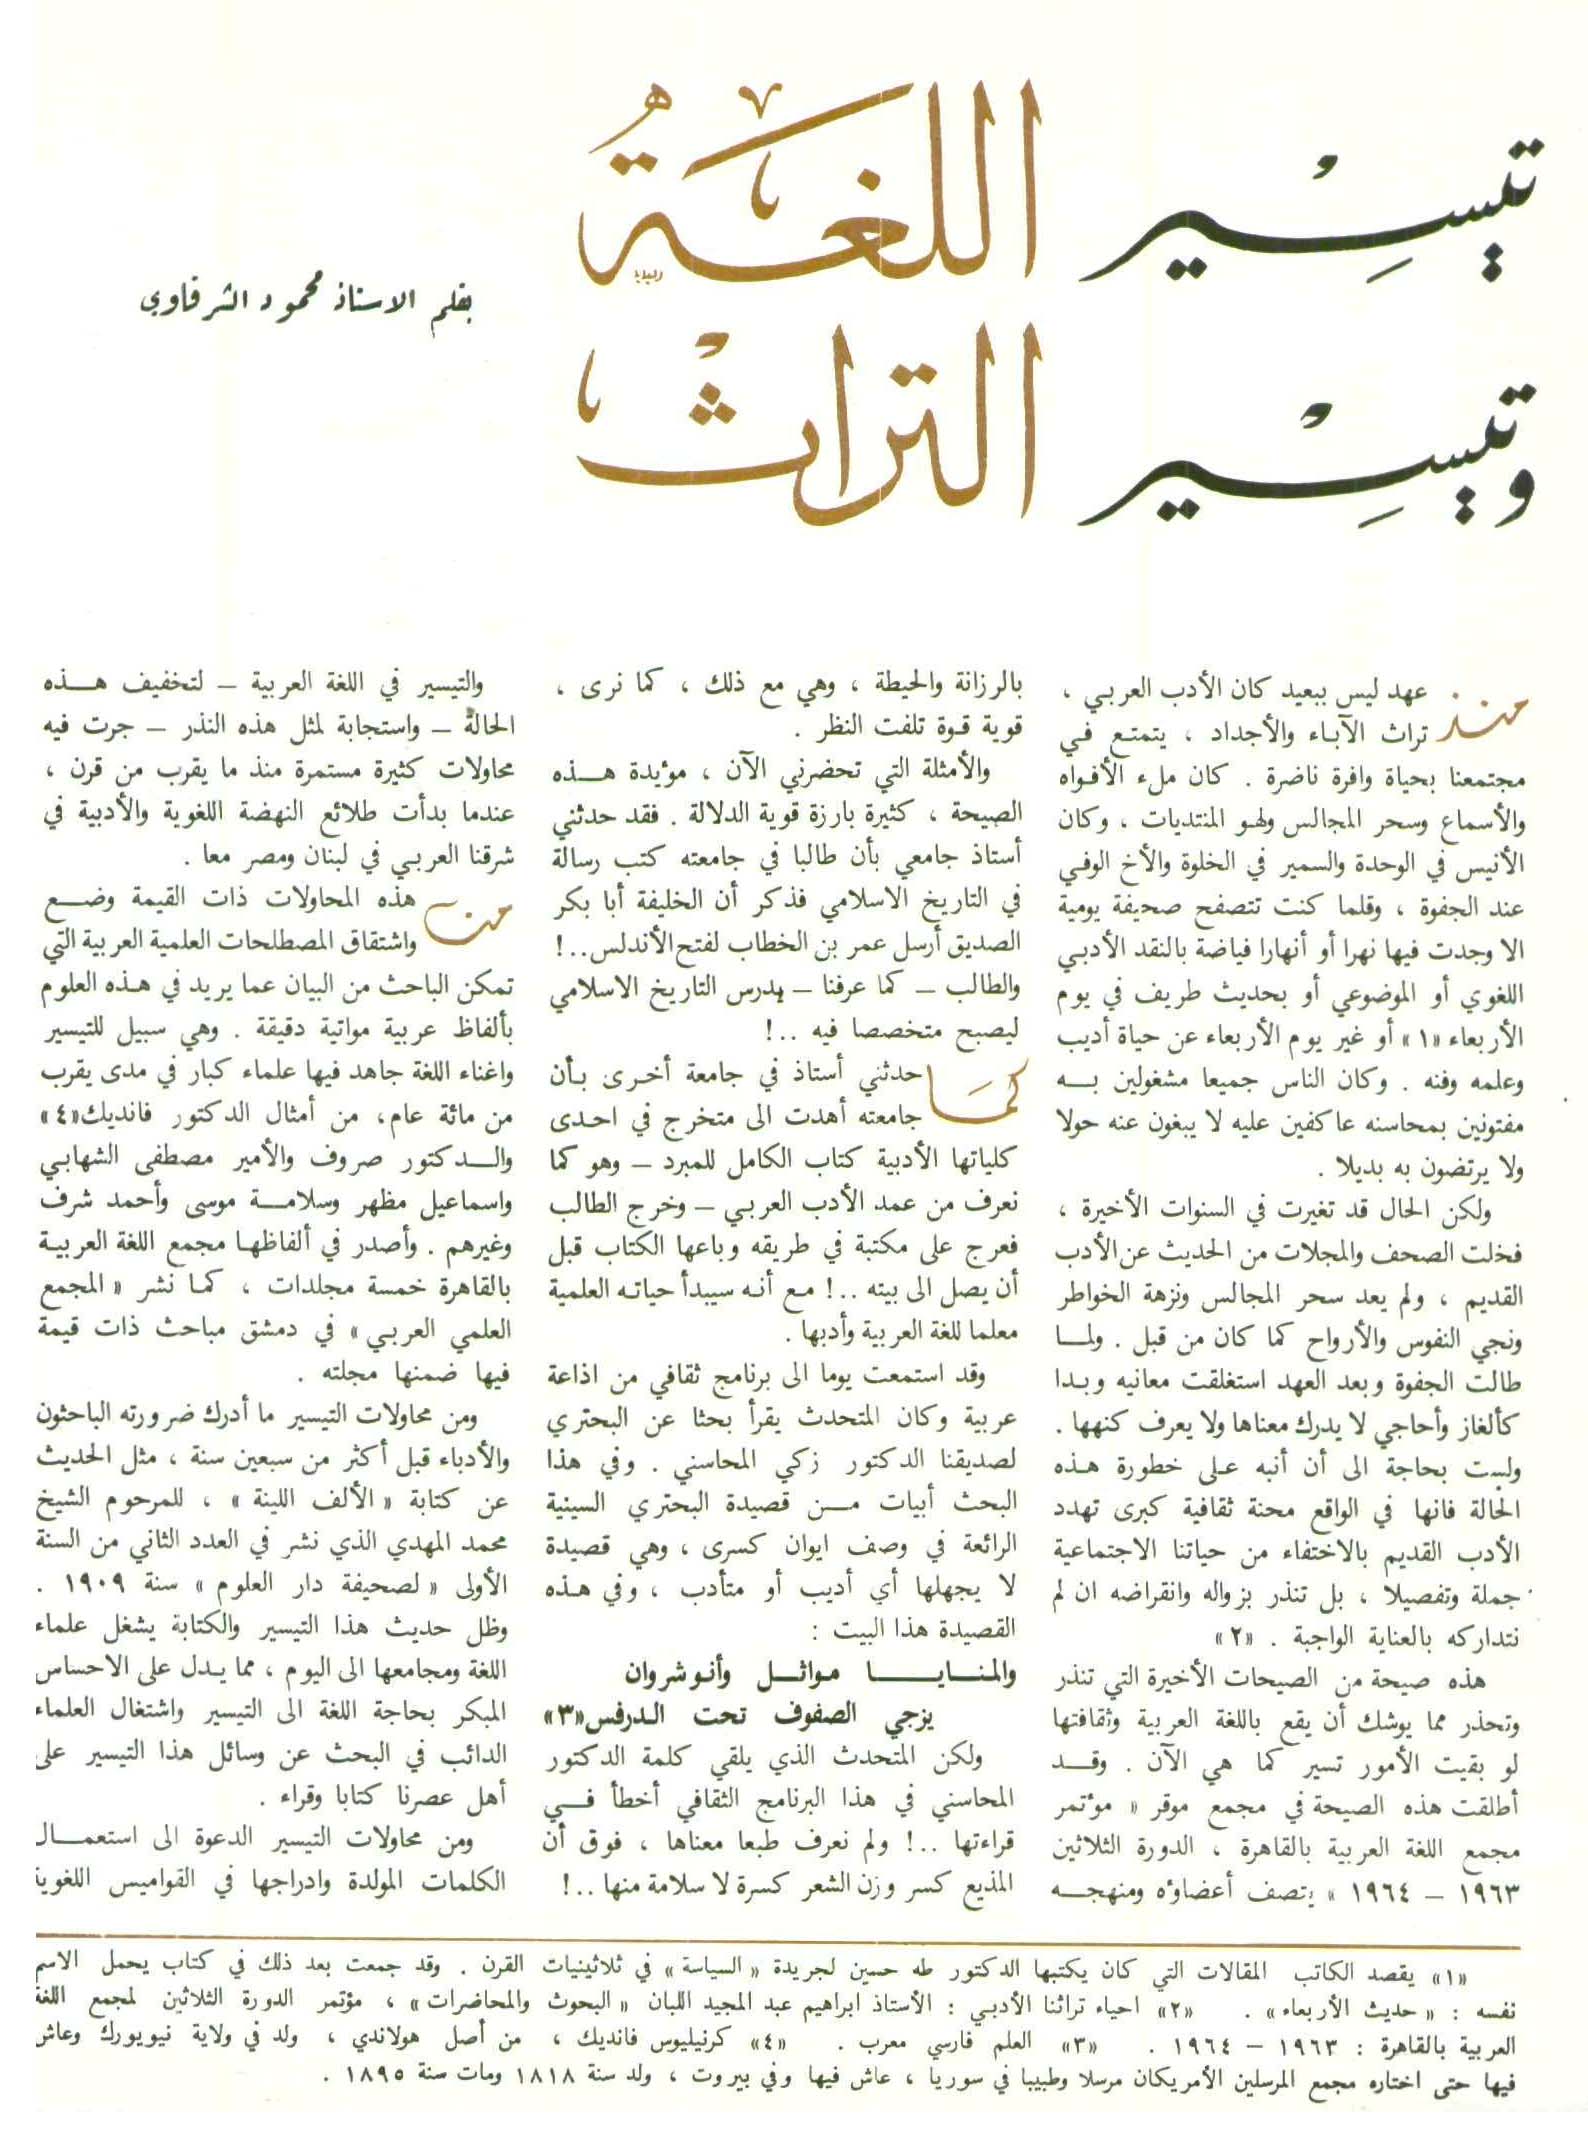 تيسير اللغة
وتيسير التراث
بقلم الاستاذ محمود الشرقاوي
منذ عهد ليس ببعيد كان الأدب العربي ،
تراث الآباء والأجداد ، يتمتع في
مجتمعنا بحياة وافرة ناضرة . كان ملء الأفواه
والأسماع وسحر المجالس ولهو المنتديات ، وكان
الأنيس في الوحدة والسمير في الخلوة والأخ الوفي
عند الجفوة ، وقلما كنت تتصفح صحيفة يومية
الا وجدت فيها نهرا أو أنهارا فياضة بالنقد الأدبي
اللغوي أو الموضوعي أو بحديث طريف في يوم
الأربعاء «١» أو غير يوم الأربعاء عن حياة أديب
وعلمه وفنه . وكان الناس جميعا مشغولين به
مفتونين بمحاسنه عاكفين عليه لا يبغون عنه حولا
ولا يرتضون به بديلا .
ولكن الحال قد تغيرت في السنوات الأخيرة ،
فخلت الصحف والمجلات من الحديث عن الأدب
القديم ، ولم يعد سحر المجالس ونزهة الخواطر
ونجي النفوس والأرواح كما كان من قبل . ولما
طالت الجفوة وبعد العهد استغلقت معانيه وبدا
كألغاز وأحاجي لا يدرك معناها ولا يعرف كنهها .
ولست بحاجة الى أن أنبه على خطورة هذه
الحالة فانها في الواقع محنة ثقافية كبرى تهدد
الأدب القديم بالاختفاء من حياتنا الاجتماعية
جملة وتفصيلا ، بل تنذر بزواله وانقراضه ان لم
نتداركه بالعناية الواجبة . «٢»
هذه صيحة من الصيحات الأخيرة التي تنذر
وتحذر مما يوشك أن يقع باللغة العربية وثقافتها
لو بقيت الأمور تسير كما هي الآن . وقد
أطلقت هذه الصيحة في مجمع موقر « مؤتمر
مجمع اللغة العربية بالقاهرة ، الدورة الثلاثين
١٩٦٣ – ١٩٦٤ » يتصف أعضاؤه ومنهجه
بالرزانة والحيطة ، وهي مع ذلك ، كما نرى ،
قوية قوة تلفت النظر .
والأمثلة التي تحضرني الآن ، مؤيدة هذه
الصيحة ، كثيرة بارزة قوية الدلالة . فقد حدثني
أستاذ جامعي بأن طالبا في جامعته كتب رسالة
في التاريخ الاسلامي فذكر أن الخليفة أبا بكر
الصديق أرسل عمر بن الخطاب لفتح الأندلس..!
والطالب – كما عرفنا – يدرس التاريخ الاسلامي
ليصبح متخصصا فيه ..!
كما حدثني أستاذ في جامعة أخرى بأن
جامعته أهدت الى متخرج في احدى
كلياتها الأدبية كتاب الكامل للمبرد – وهو كما
نعرف من عمد الأدب العربي – وخرج الطالب
فعرج على مكتبة في طريقه وباعها الكتاب قبل
أن يصل الى بيته ..! مع أنه سيبدأ حياته العلمية
معلما للغة العربية وأدبها .
وقد استمعت يوما الى برنامج ثقافي من اذاعة
عربية وكان المتحدث يقرأ بحثا عن البحتري
لصديقنا الدكتور زكي المحاسني . وفي هذا
البحث أبيات من قصيدة البحتري السينية
الرائعة في وصف ايوان كسرى ، وهي قصيدة
لا يجهلها أي أديب أو متأدب ، وفي هذه
القصيدة هذا البيت :
والمنايا مواثل وأنوشروان
يزجي الصفوف تحت الدرفس«٣»
ولكن المتحدث الذي يلقي كلمة الدكتور
المحاسني في هذا البرنامج الثقافي أخطأ في
قراءتها ..! ولم نعرف طبعا معناها ، فوق أن
المذيع كسر وزن الشعر كسرة لا سلامة منها ..!
والتيسير في اللغة العربية – لتخفيف هذه
الحالة – واستجابة لمثل هذه النذر – جرت فيه
محاولات كثيرة مستمرة منذ ما يقرب من قرن ،
عندما بدأت طلائع النهضة اللغوية والأدبية في
شرقنا العربي في لبنان ومصر معا .
من هذه المحاولات ذات القيمة وضع
واشتقاق المصطلحات العلمية العربية التي
تمكن الباحث من البيان عما يريد في هذه العلوم
بألفاظ عربية مواتية دقيقة . وهي سبيل للتيسير
واغناء اللغة جاهد فيها علماء كبار في مدى يقرب
من مائة عام، من أمثال الدكتور فانديك«٤»
والدكتور صروف والأمير مصطفى الشهابي
واسماعيل مظهر وسلامة موسى وأحمد شرف
وغيرهم . وأصدر في ألفاظها مجمع اللغة العربية
بالقاهرة خمسة مجلدات ، كما نشر « المجمع
العلمي العربي » في دمشق مباحث ذات قيمة
فيها ضمنها مجلته .
ومن محاولات التيسير ما أدرك ضرورته الباحثون
والأدباء قبل أكثر من سبعين سنة ، مثل الحديث
عن كتابة « الألف اللينة » ، للمرحوم الشيخ
محمد المهدي الذي نشر في العدد الثاني من السنة
الأولى « لصحيفة دار العلوم » سنة ١٩٠٩ .
وظل حديث هذا التيسير والكتابة يشغل علماء
اللغة ومجامعها الى اليوم ، مما يدل على الاحساس
المبكر بحاجة اللغة الى التيسير واشتغال العلماء
الدائب في البحث عن وسائل هذا التيسير على
أهل عصرنا كتابا وقراء .
ومن محاولات التيسير الدعوة الى استعمال
الكلمات المولدة وادراجها في القواميس اللغوية
«١» يقصد الكاتب المقالات التي كان يكتبها الدكتور طه حسين لجريدة « السياسة » في ثلاثينيات القرن . وقد جمعت بعد ذلك في كتاب يحمل الاسم
نفسه : « حديث الأربعاء » . «٢» احياء تراثنا الأدبي : الأستاذ ابراهيم عبد المجيد اللبان « البحوث والمحاضرات » ، مؤتمر الدورة الثلاثين لمجمع اللغة
العربية بالقاهرة : ١٩٦٣ – ١٩٦٤ . «٣» العلم فارسي معرب . «٤» كرنيليوس فانديك ، من أصل هولاندي ، ولد في ولاية نيويورك وعاش
فيها حتى اختاره مجمع المرسلين الأمريكان مرسلا وطبيبا في سوريا ، عاش فيها وفي بيروت ، ولد سنة ١٨١٨ ومات سنة ١٨٩٥ .